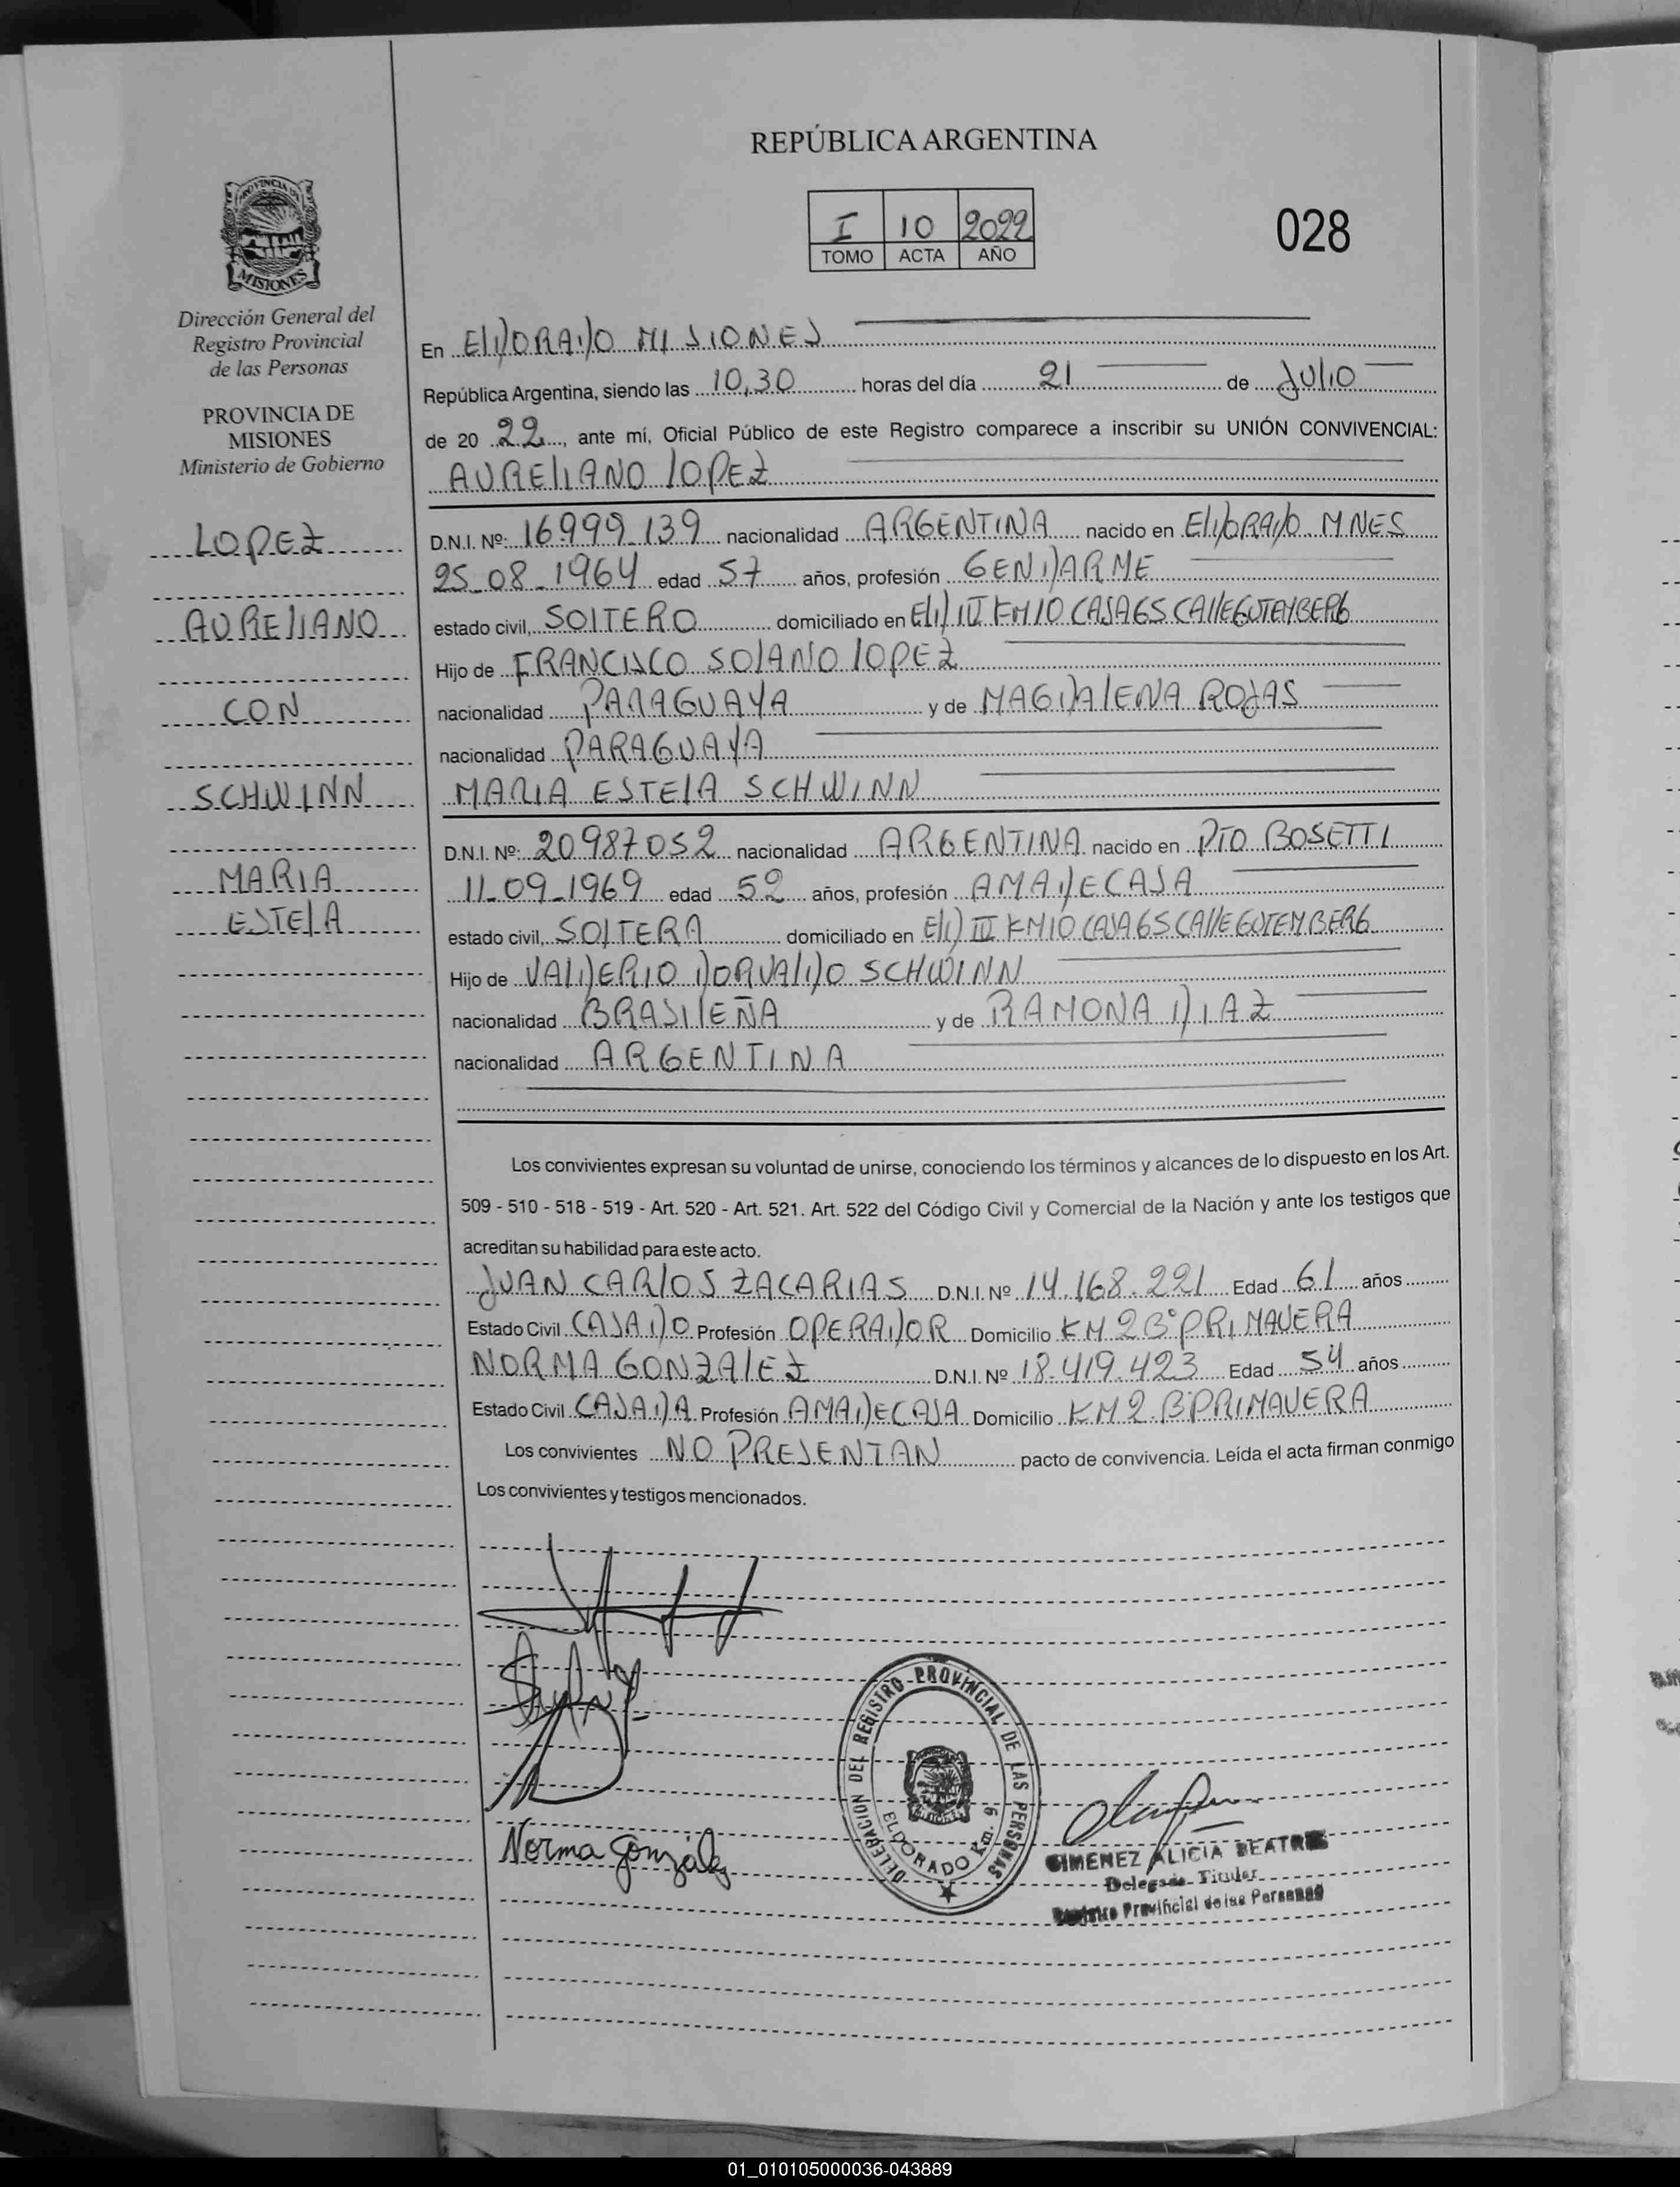 REPÚBLICA ARGENTINA
I 10 2022
TOMO ACTA AÑO
028
PROVINCIA DE
MISIONES
Dirección General del
Registro Provincial
de las Personas
PROVINCIA DE
MISIONES
Ministerio de Gobierno
LOPEZ
AURELIANO
CON
SCHWINN
MARIA
ESTELA
En ELDORADO MISIONES
República Argentina, siendo las 10,30 horas del día 21 de JULIO
de 20 22, ante mí, Oficial Público de este Registro comparece a inscribir su UNIÓN CONVIVENCIAL:
AURELIANO LOPEZ
D.N.I. Nº: 16999139 nacionalidad ARGENTINA nacido en ELDORADO MNES
25-08-1964 edad 57 años, profesión GENDARME
estado civil, SOLTERO domiciliado en ELD III KM10 CASA65 CALLE GUTEMBERG
Hijo de FRANCISCO SOLANO LOPEZ
nacionalidad PARAGUAYA y de MAGDALENA ROJAS
nacionalidad PARAGUAYA
MARIA ESTELA SCHWINN
D.N.I. Nº: 20987052 nacionalidad ARGENTINA nacido en PTO BOSETTI
11-09-1969 edad 52 años, profesión AMA DE CASA
estado civil, SOLTERA domiciliado en ELD III KM10 CASA65 CALLE GUTEMBERG
Hijo de VALDERIO DORVALDO SCHWINN
nacionalidad BRASILEÑA y de RAMONA DIAZ
nacionalidad ARGENTINA
Los convivientes expresan su voluntad de unirse, conociendo los términos y alcances de lo dispuesto en los Art.
509 - 510 - 518 - 519 - Art. 520 - Art. 521. Art. 522 del Código Civil y Comercial de la Nación y ante los testigos que
acreditan su habilidad para este acto.
JUAN CARLOS ZACARIAS D.N.I. Nº 14.168.221 Edad 61 años
Estado Civil CASADO Profesión OPERADOR Domicilio KM 2 Bº PRIMAVERA
NORMA GONZALEZ D.N.I. Nº 18.419.423 Edad 54 años
Estado Civil CASADA Profesión AMA DE CASA Domicilio KM 2 Bº PRIMAVERA
Los convivientes NO PRESENTAN pacto de convivencia. Leída el acta firman conmigo
Los convivientes y testigos mencionados.
Norma González
DELEGACION DEL REGISTRO PROVINCIAL DE LAS PERSONAS
ELDORADO Km. 9
GIMENEZ ALICIA BEATRIZ
Delegada Titular
Registro Provincial de las Personas
01_010105000036-043889